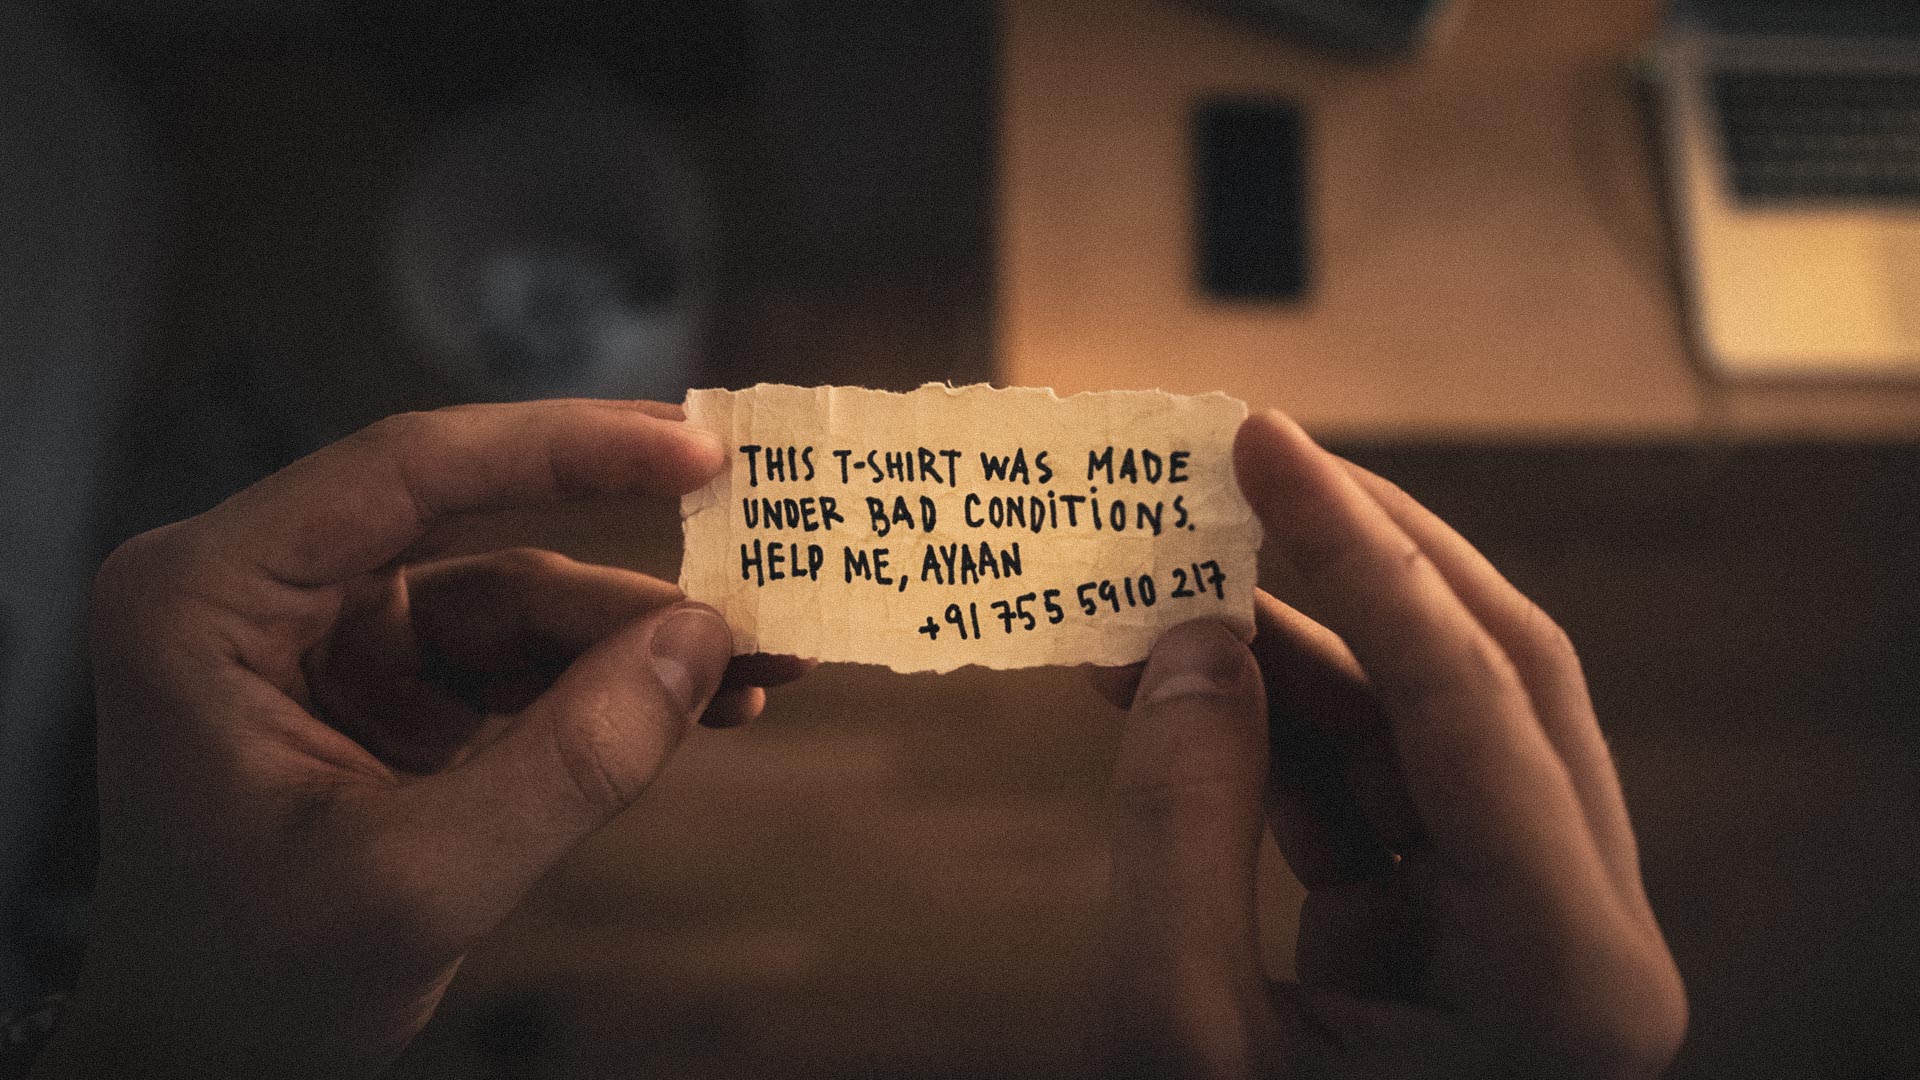 THIS T-SHIRT WAS MADE
UNDER BAD CONDITIONS.
HELP ME, AYAAN
+91 755 5910 217